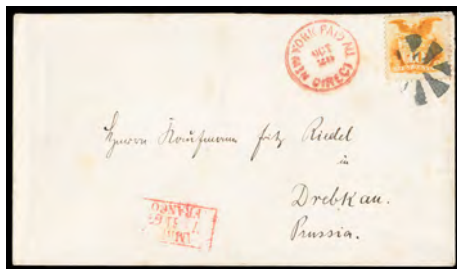 NEW YORK PAID ALL
DIRECT
OCT
Herrn Kaufmann Fritz Riedel
in
Drebkau.
Prussia.
FRANCO